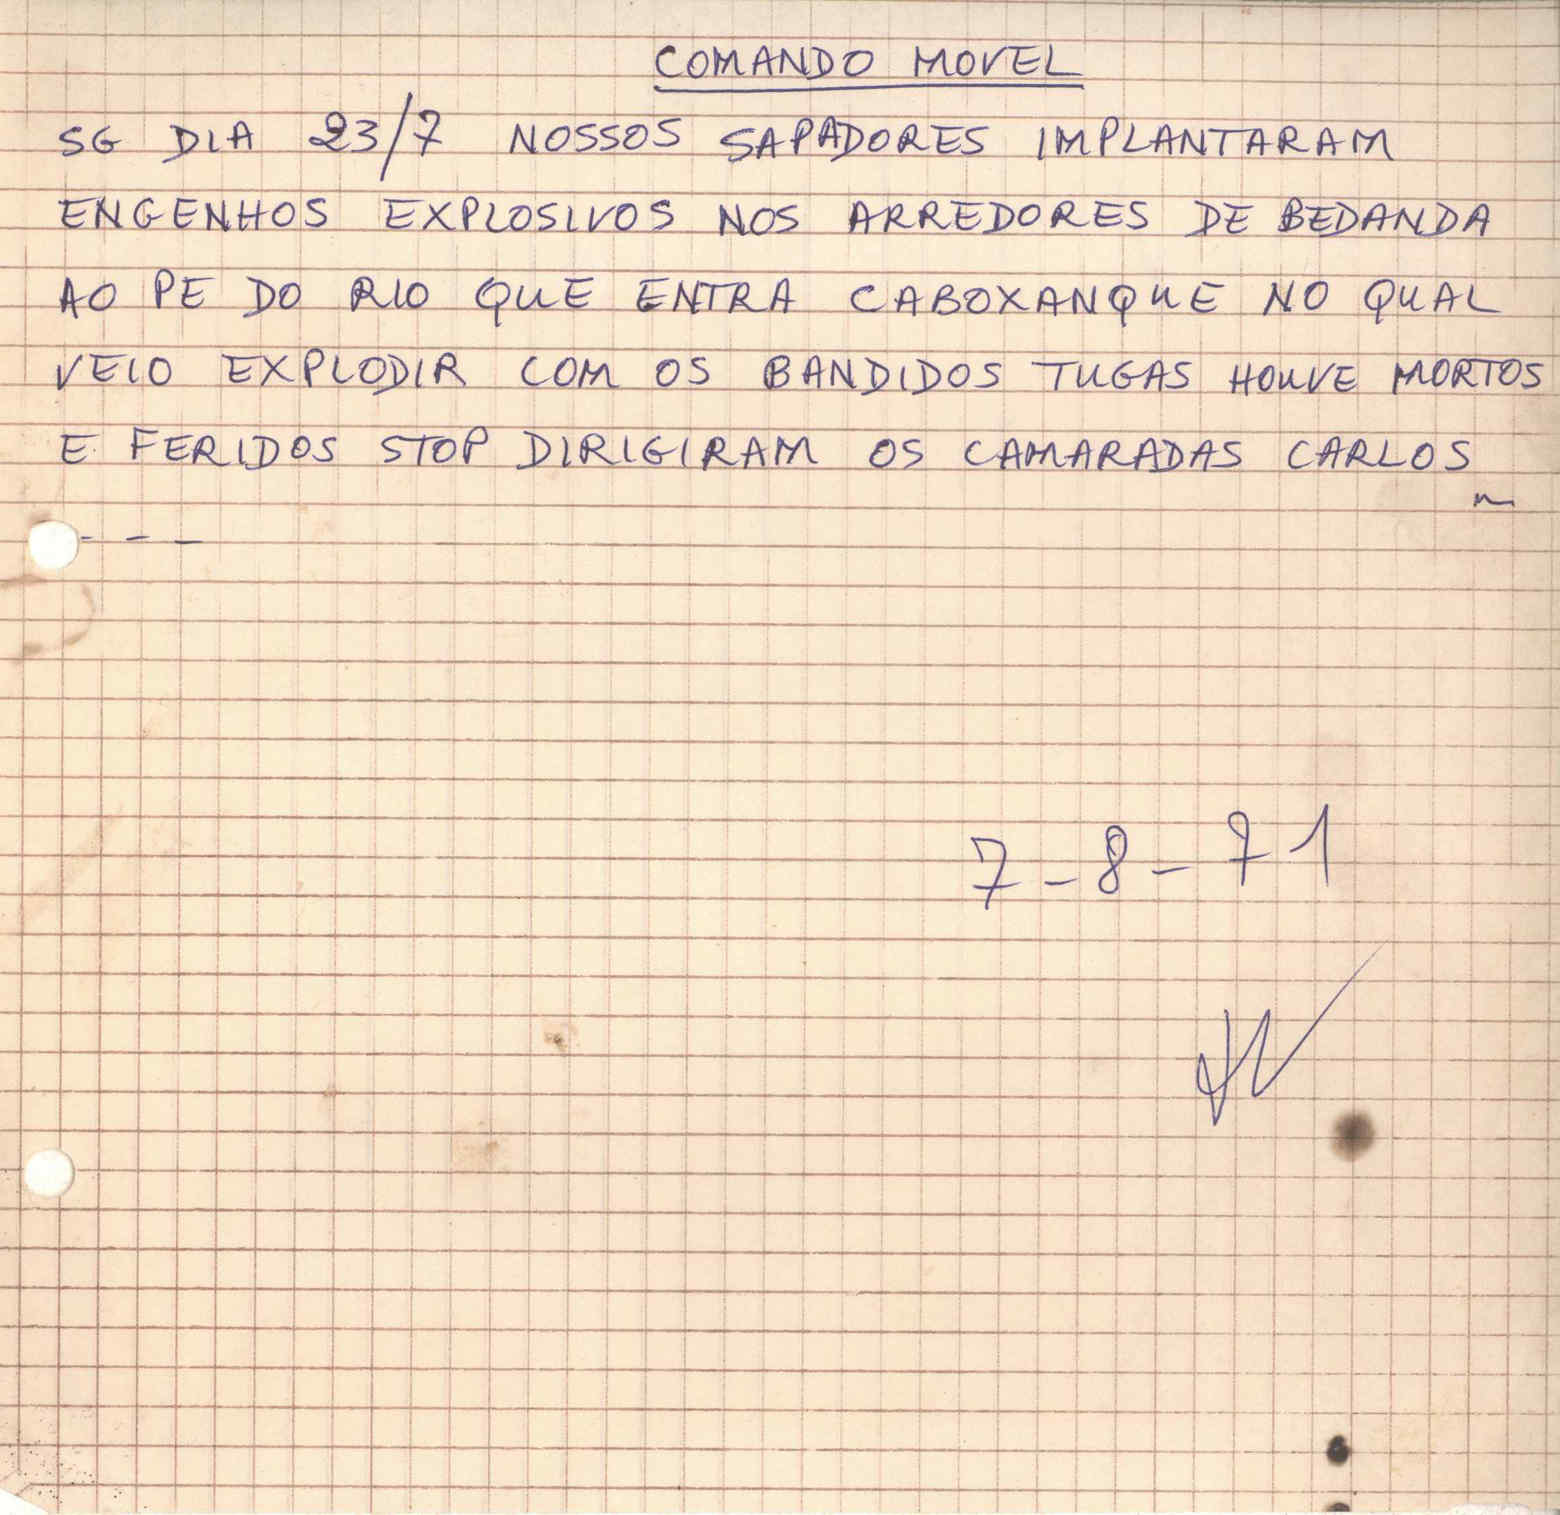 COMANDO MOVEL
SG DIA 23/7 NOSSOS SAPADORES IMPLANTARAM
ENGENHOS EXPLOSIVOS NOS ARREDORES DE BEDANDA
AO PE DO RIO QUE ENTRA CABOXANQUE NO QUAL
VEIO EXPLODIR COM OS BANDIDOS TUGAS HOUVE MORTOS
E FERIDOS STOP DIRIGIRAM OS CAMARADAS CARLOS
- - -
7-8-71